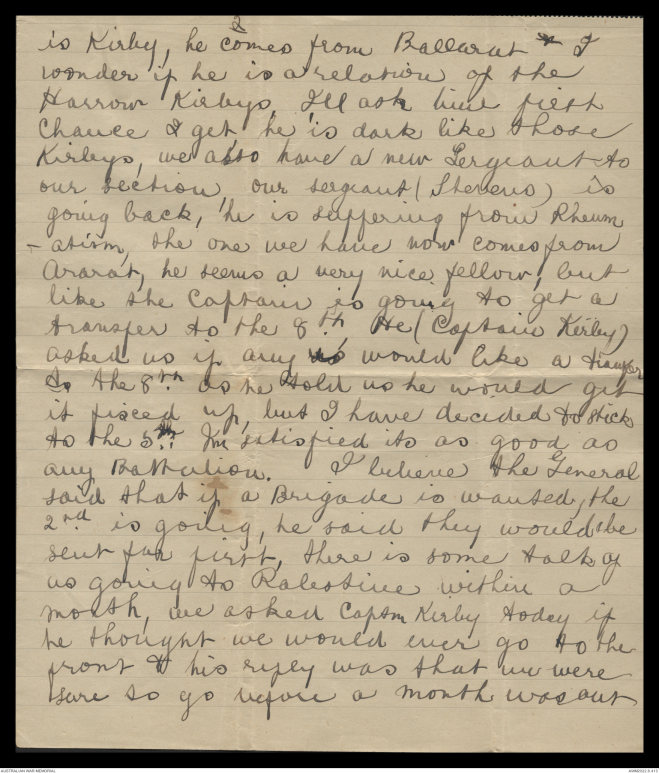 2
is Kirby, he comes from Ballarat & I
wonder if he is a relation of the
Harrow Kirbys, I'll ask him first
Chance I get, he is dark like those
Kirbys, we also have a new Sergeant to
our section, our sergeant (Stevens) is
going back, he is suffering from Rheum
-atism, the one we have now comes from
Ararat, he seems a very nice fellow, but
like the Captain is going to get a
transfer to the 8th. He (Captain Kirby)
asked us if any us would like a transfer
to the 8th. as he told us he would get
it fixed up, but I have decided to stick
to the 5th. I'm satisfied its as good as
any Battalion. I believe the General
said that if a Brigade is wanted, the
2nd. is going, he said they would be
sent for first, there is some talk of
us going to Palestine within a
month, we asked Captn Kirby today if
he thought we would ever go to the
front & his reply was that we were
sure to go before a month was out
AUSTRALIAN WAR MEMORIAL